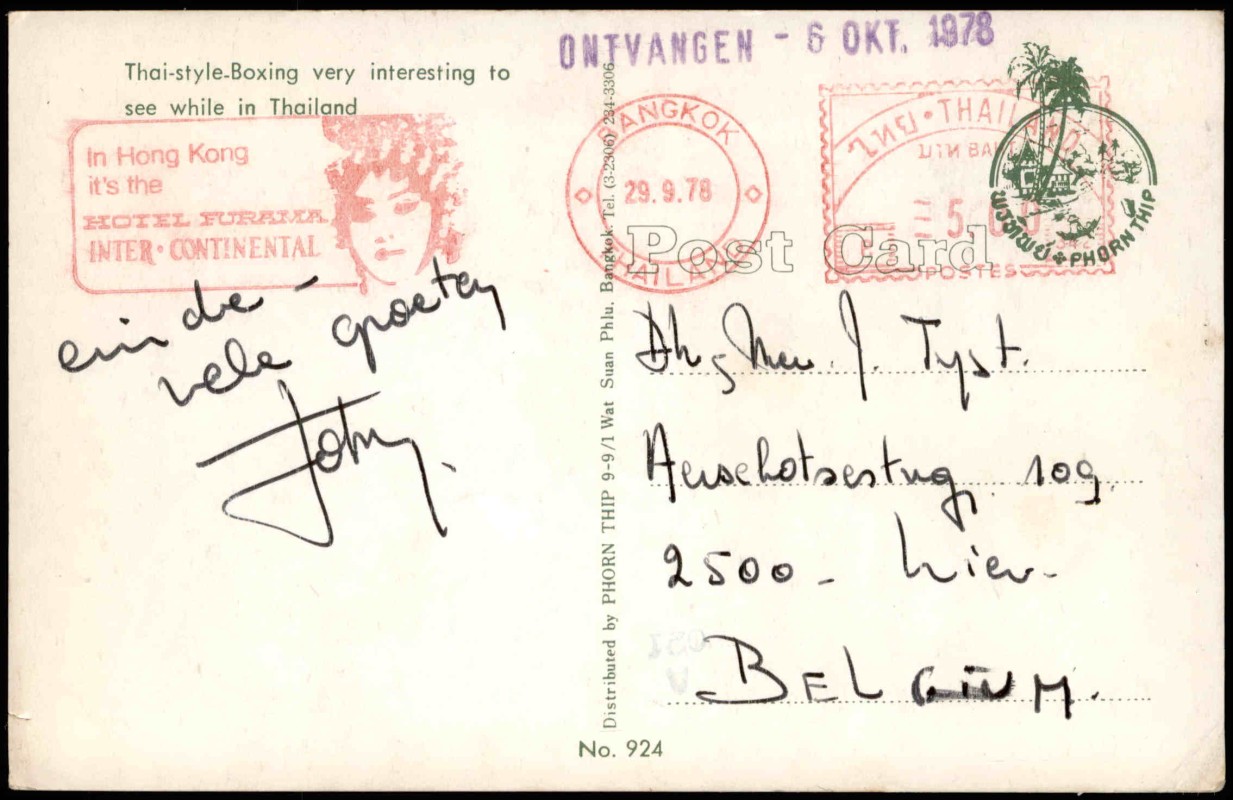 ONTVANGEN - 6 OKT. 1978
Thai-style-Boxing very interesting to
see while in Thailand
In Hong Kong
it's the
HOTEL FURAMA
INTER · CONTINENTAL
BANGKOK
29.9.78
THAILAND
ไทย · THAILAND
บาท BAHT
POSTES
พรทิพย์ PHORN THIP
Post Card
vele groeten
Johny.
Distributed by PHORN THIP 9-9/1 Wat Suan Phlu, Bangkok. Tel. (3-2306) 234-3306
J. Tyst.
109
2500 - Lier.
BELGIUM.
No. 924